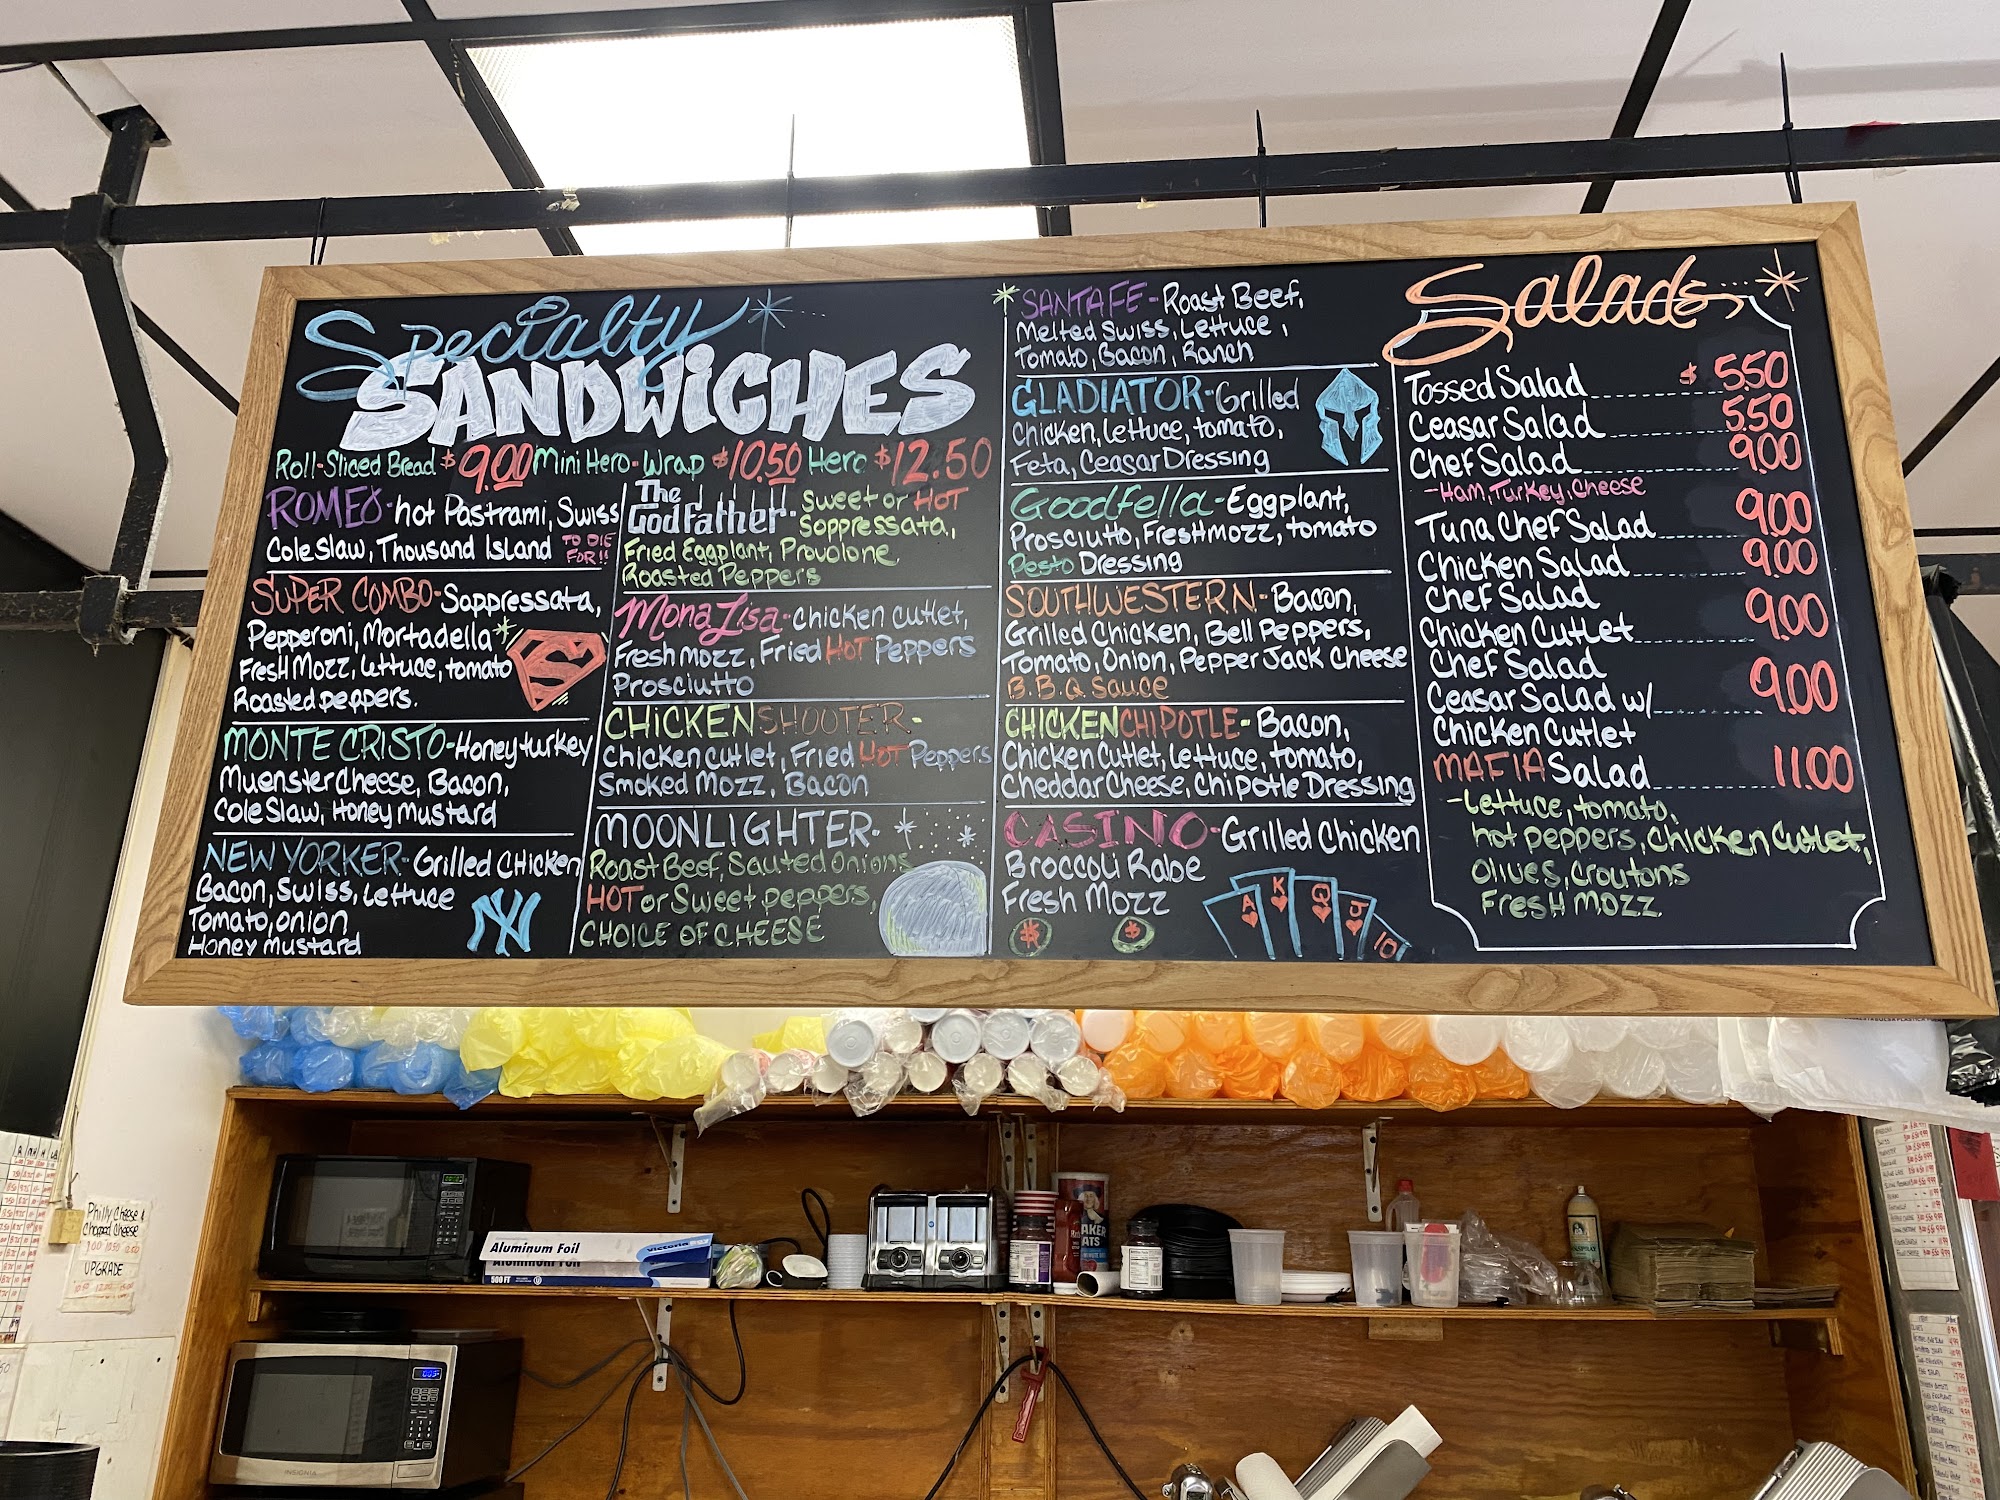 Specialty
SANDWiCHES
Roll-Sliced Bread $9.00 Mini Hero-Wrap $10.50 Hero $12.50
ROMEO-hot Pastrami, Swiss
Cole Slaw, Thousand Island TO DIE FOR!!
SUPER COMBO-Soppressata,
Pepperoni, Mortadella
Fresh Mozz, Lettuce, tomato
Roasted peppers.
MONTE CRISTO-Honey turkey
Muenster Cheese, Bacon,
Cole Slaw, Honey Mustard
NEW YORKER-Grilled CHicken
Bacon, Swiss, Lettuce
Tomato, onion
Honey mustard
NY
The
GodFather- Sweet or HOT
Soppressata,
Fried Eggplant, Provolone
Roasted Peppers
Mona Lisa-chicken cutlet,
Fresh mozz, Fried HOT Peppers
Prosciutto
CHiCKEN SHOOTER-
Chicken cutlet, Fried HOT Peppers
Smoked Mozz, Bacon
MOONLIGHTER-
Roast Beef, Sauted Onions
HOT or Sweet peppers,
CHOICE OF CHEESE
SANTA FE-Roast Beef,
Melted Swiss, Lettuce,
Tomato, Bacon, Ranch
GLADIATOR-Grilled
Chicken, Lettuce, tomato,
Feta, Ceasar Dressing
Goodfella-Eggplant,
Prosciutto, Fresh mozz, tomato
Pesto Dressing
SOUTHWESTERN-Bacon,
Grilled Chicken, Bell Peppers,
Tomato, Onion, Pepper Jack Cheese
B.B.Q Sauce
CHICKEN CHIPOTLE-Bacon,
Chicken Cutlet, Lettuce, tomato,
Cheddar Cheese, Chipotle Dressing
CASINO-Grilled Chicken
Broccoli Rabe
Fresh Mozz
A K Q J 10
Salads
Tossed Salad $5.50
Ceasar Salad 5.50
Chef Salad 9.00
-Ham, Turkey, Cheese
Tuna Chef Salad 9.00
Chicken Salad 9.00
Chef Salad
Chicken Cutlet 9.00
Chef Salad
Ceasar Salad w/ 9.00
Chicken Cutlet
MAFIA Salad 11.00
-Lettuce, tomato,
hot peppers, Chicken Cutlet,
Olives, Croutons
Fresh Mozz
Philly Cheese &
Chopped Cheese
UPGRADE
Aluminum Foil
Aluminum Foil
500 FT
INSIGNIA